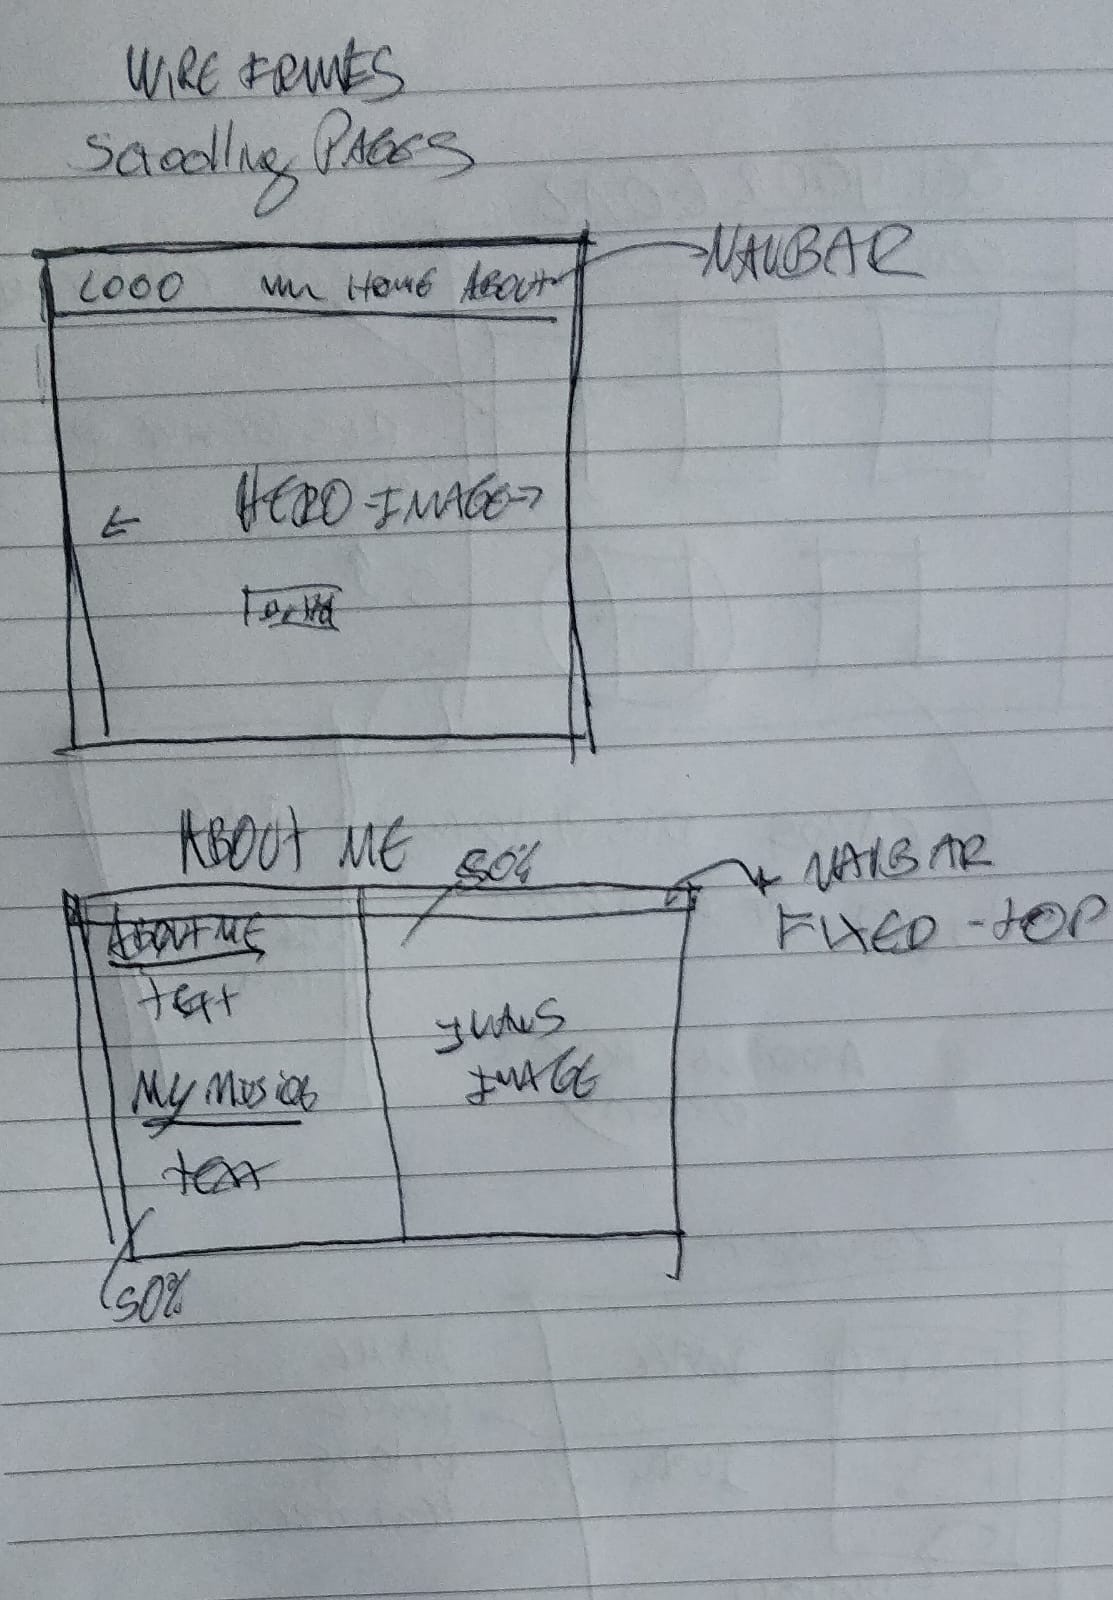 WIRE FRAMES
Scrolling PAGES
LOGO HOME ABOUT
NAVBAR
HERO-IMAGE
ABOUT ME
50%
NAVBAR
FIXED-TOP
ABOUT ME
text
IMAGE
MY Mission
text
50%